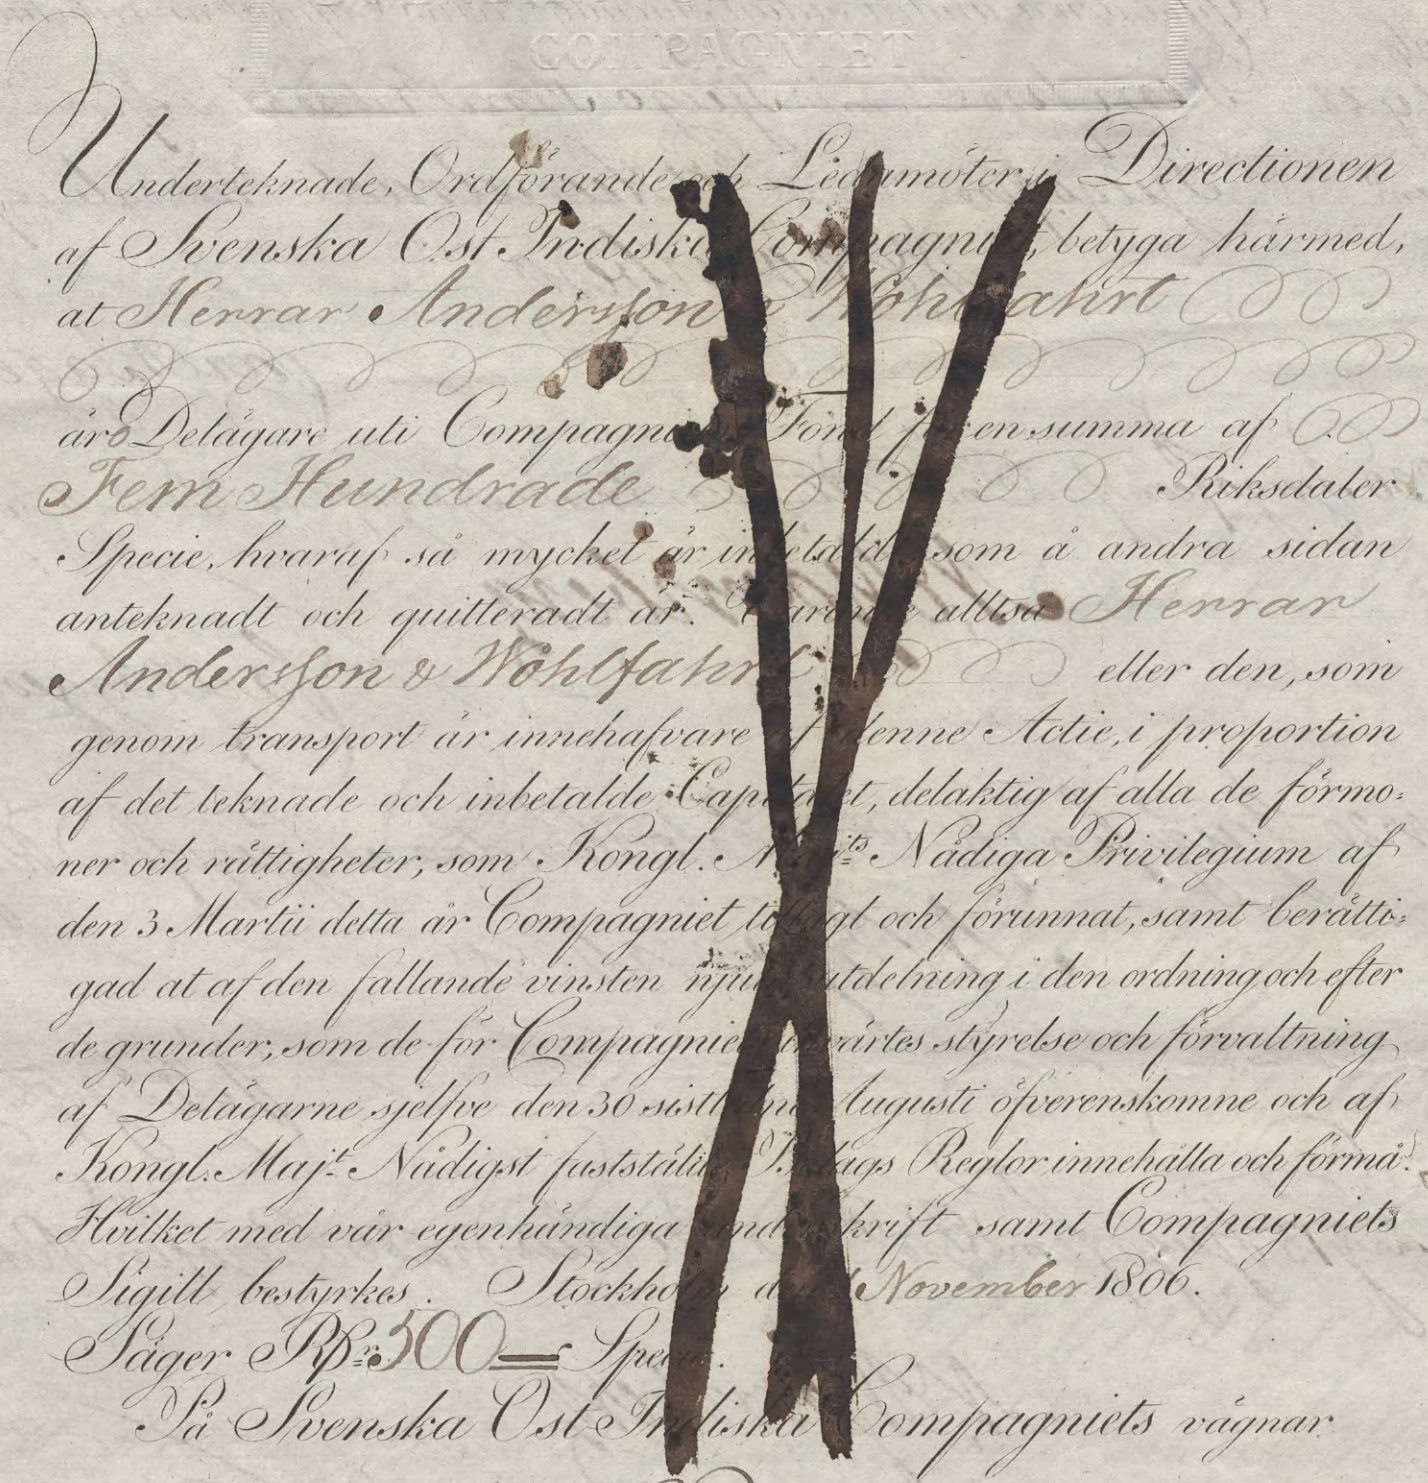 COMPAGNIET
Underteknade, Ordförande och Ledamöter i Directionen
af Svenska Ost Indiska Compagniet, betyga härmed,
at Herrar Andersson & Wohlfahrt
äro Delägare uti Compagniets Fond för en summa af
Fem Hundrade Riksdaler
Specie, hvaraf så mycket är inbetaldt, som å andra sidan
anteknadt och quitteradt är. Varande alltså Herrar
Andersson & Wohlfahrt eller den, som
genom transport är innehafvare af denne Actie, i proportion
af det teknade och inbetalde Capitalet, delaktig af alla de förmo-
ner och rättigheter, som Kongl. Maj:ts Nådiga Privilegium af
den 3 Martii detta år Compagniet tillagt och förunnat, samt berätti-
gad at af den fallande vinsten njuta utdelning i den ordning och efter
de grunder, som de för Compagniets invärtes styrelse och förvaltning
af Delägarne sjelfve den 30 sistledne Augusti öfverenskomne och af
Kongl. Maj:t Nådigst fastställde Bolags Reglor innehålla och förmå.
Hvilket med vår egenhändiga underskrift samt Compagniets
Sigill bestyrkes. Stockholm den November 1806.
Säger RDr. 500 Specie.
På Svenska Ost Indiska Compagniets vägnar